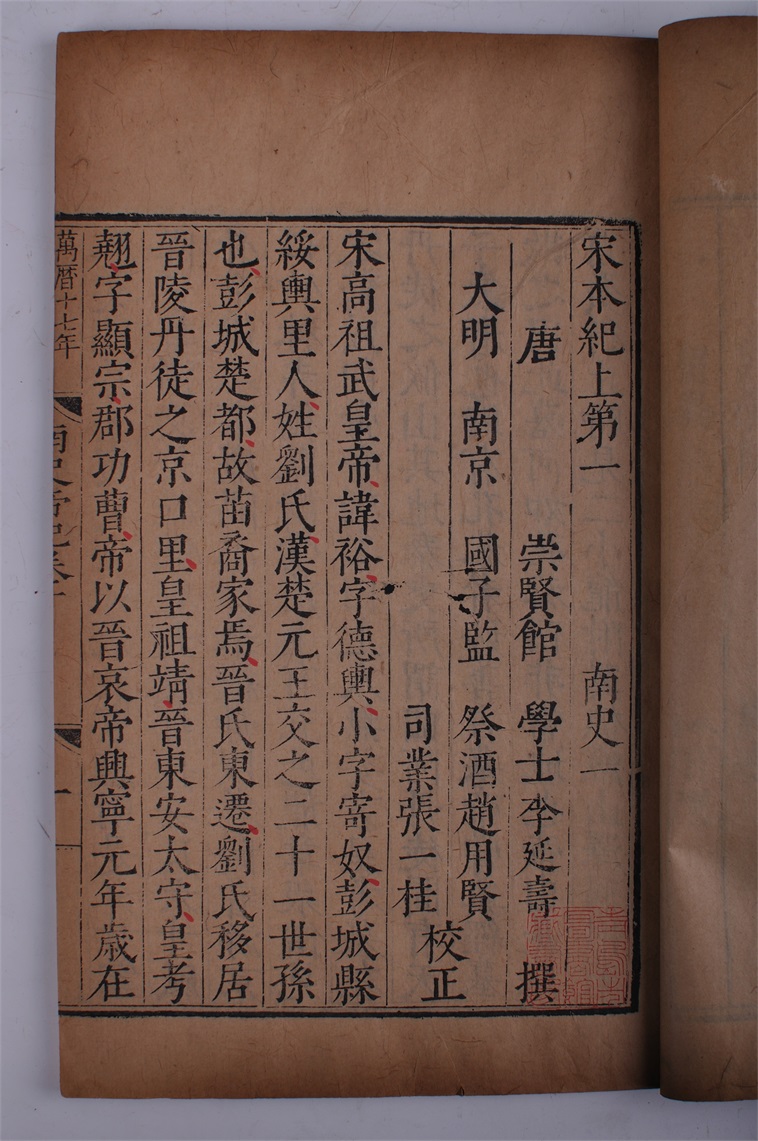 宋本紀上第一 南史一
唐 崇賢館 學士李延壽 撰
大明 南京 國子監 祭酒趙用賢
司業張一桂 校正
宋高祖武皇帝諱裕字德輿小字寄奴彭城縣
綏輿里人姓劉氏漢楚元王交之二十一世孫
也彭城楚都故苗裔家焉晉氏東遷劉氏移居
晉陵丹徒之京口里皇祖靖晉東安太守皇考
翹字顯宗郡功曹帝以晉哀帝興寧元年歲在
萬曆十七年 南史帝紀卷一 一